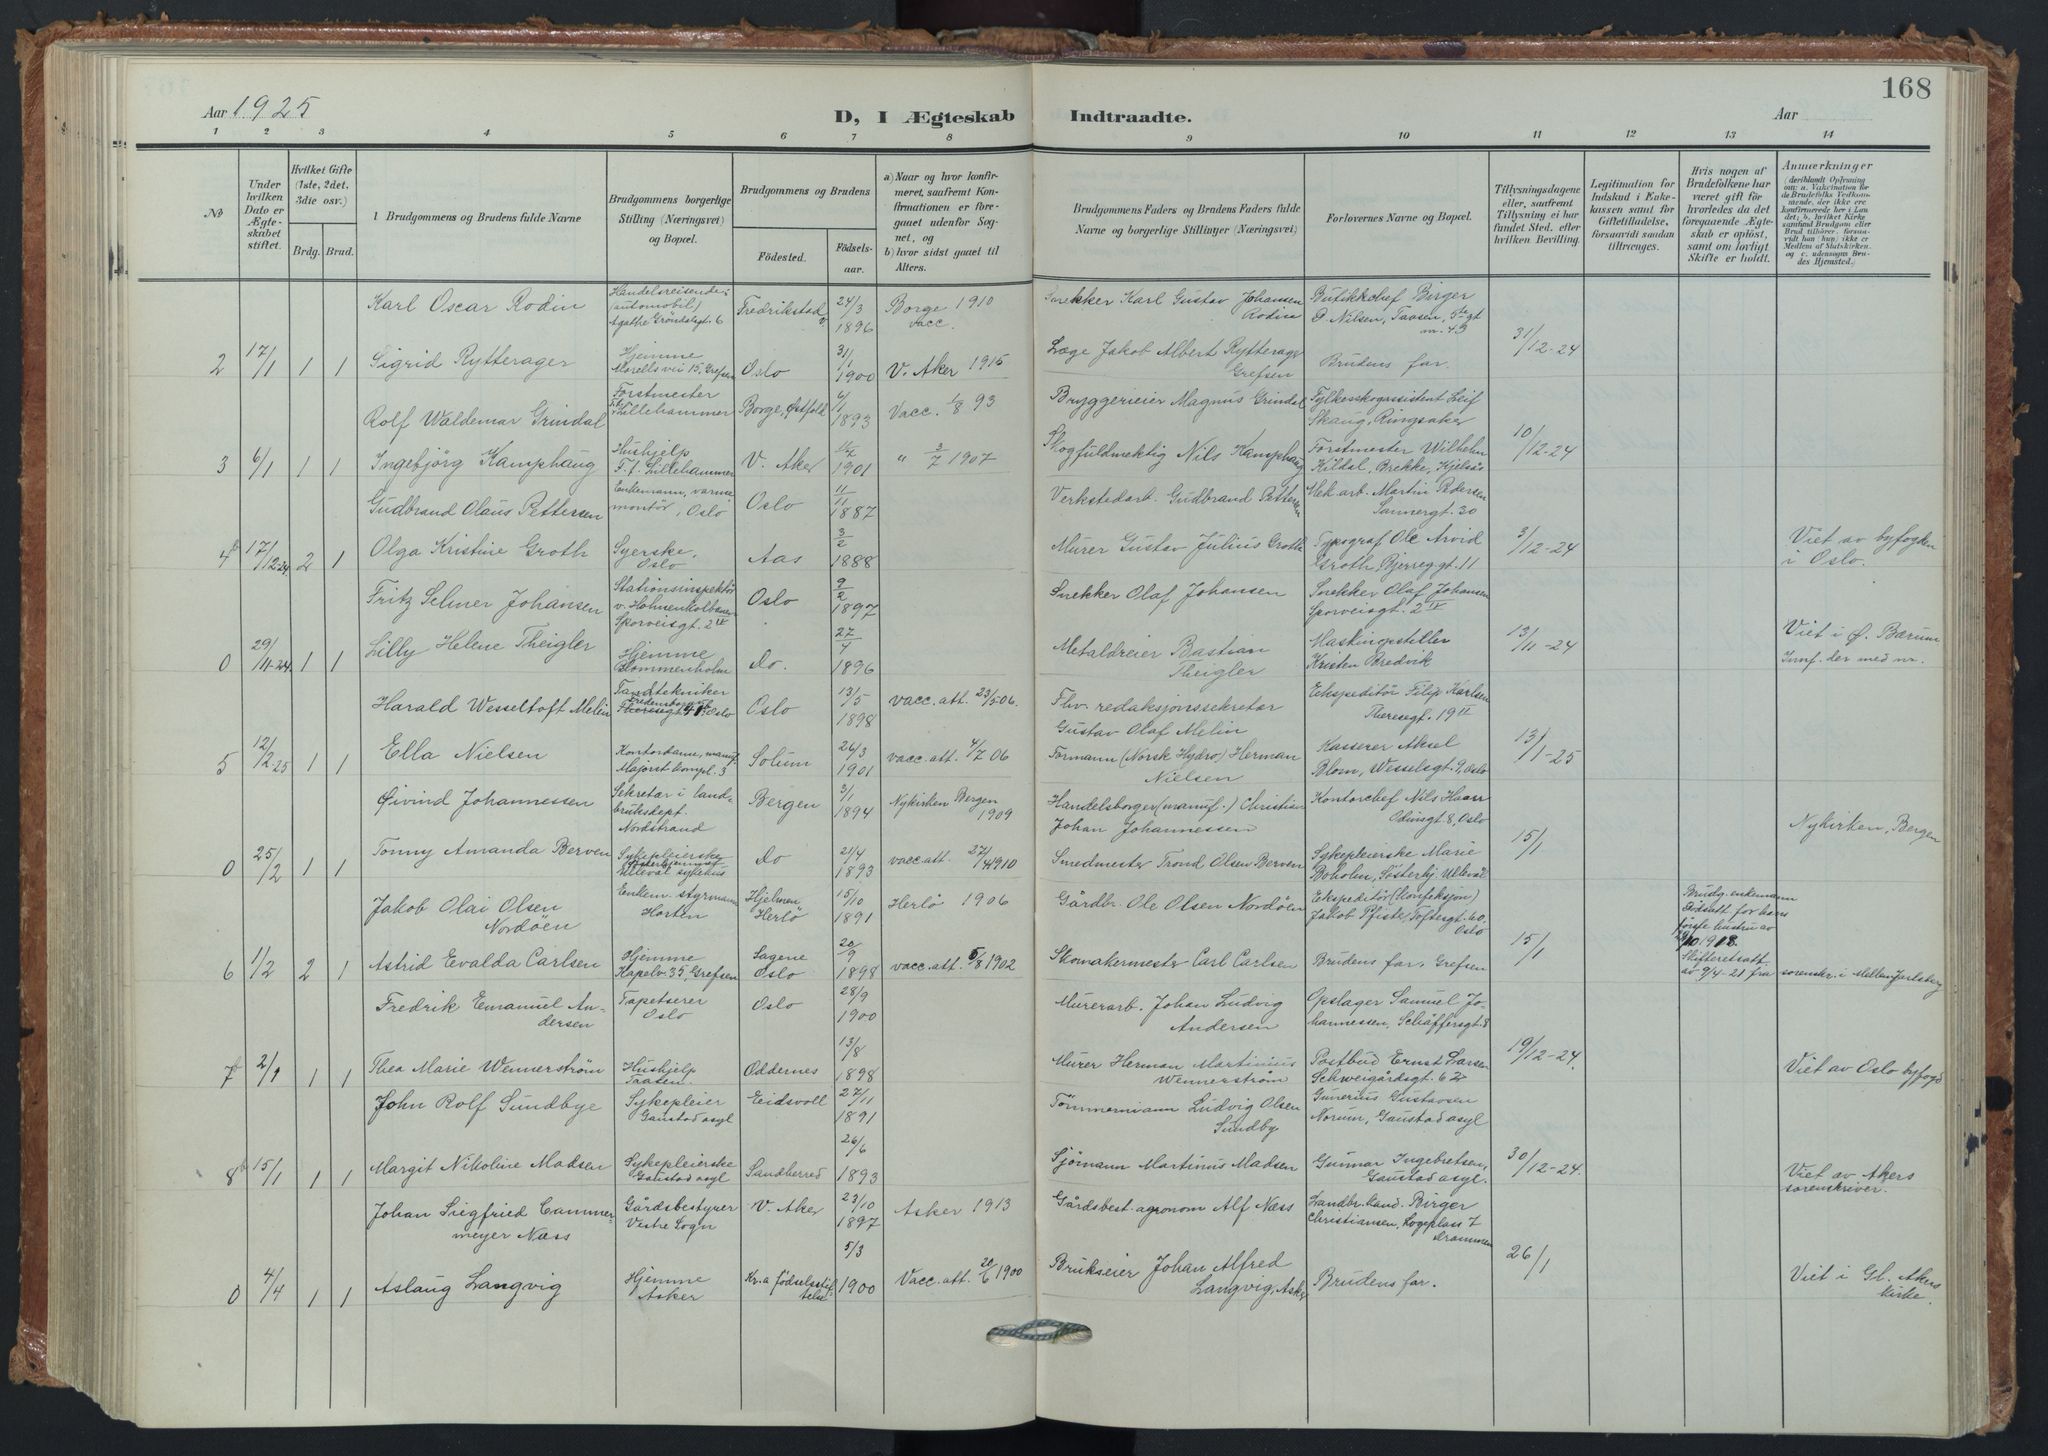 168
Aar 1925
D, I Ægteskab Indtraadte.
Aar
1 2 3 4 5 6 7 8 9 10 11 12 13 14
No
Under hvilken Dato er Ægteskabet stiftet.
Hvilket Gifte (1ste, 2det, 3die osv.)
Brdg. Brud.
1 Brudgommens og Brudens fulde Navne
Brudgommens borgerlige Stilling (Næringsvei) og Bopæl.
Brudgommens og Brudens
Födested. Födselsaar.
a) Naar og hvor konfirmeret, saafremt Konfirmationen er foregaaet udenfor Sognet, og
b) hvor sidst gaaet til Alters.
Brudgommens Faders og Brudens Faders fulde Navne og borgerlige Stillinger (Næringsvei)
Forlovernes Navne og Bopæl.
Tillysningsdagene eller, saafremt Tillysning ei har fundet Sted, efter hvilken Bevilling.
Legitimation for Indskud i Enkekassen samt for Giftetilladelse, forsaavidt saadan tiltrænges.
Hvis nogen af Brudefolkene har været gift før hvorledes da det foregaaende Ægteskab er opløst, samt om lovligt Skifte er holdt.
Anmerkninger
(deriblandt Oplysning om: a. Vakcination for de Brudefolks Vedkommende, der ikke ere konfirmerede her i Landet; b. hvilket Kirkesamfund Brudgom eller Brud tilhører, forsaavidt han (hun) ikke er Medlem af Statskirken, og c. udensogns Brudes Hjemsted.)
Karl Oscar Rodin Handelsreisende (automobil) Agathe Gröndalsgt. 6 Fredrikstad 24/3 1896 Borge 1910 vacc. Snekker Karl Gustav Johansen Rodin Butikkchef Birger O. Nilsen, Taasen, 5te gt m. 43
2 17/1 1 1 Sigrid Rytterager Hjemme Morells vei 15, Grefsen Oslo 31/1 1900 V. Aker 1915 Læge Jakob Albert Rytterager Grefsen Brudens far. 31/12-24
Rolf Waldemar Grindal Forstmester Lillehammer Borge, Østfold 6/1 1893 Vacc. 1/8 93 Bryggerieier Magnus Grindal Fylkesskogassistent Leif Skaug, Ringsaker
3 6/1 1 1 Ingebjörg Kamphaug Hushjelp F.f. Lillehammer V. Aker 1901 " 3/7 1907 Skogfuldmektig Nils Kamphaug Forstmester Wilhelm Kildal, Brekke, Kjelsås 10/12-24
Gudbrand Olaus Pettersen Enkemann, varmemontör, Oslo Oslo 11/11 1887 Verkstedarb. Gudbrand Pettersen Mek. arb. Martin Pedersen Sannergt. 30
4b 17/12-24 2 1 Olga Kristine Groth Syerske, Oslo Aas 3/2 1888 Murer Gustav Julius Groth Typograf Ole Arvid Groth, Bjerreggt. 11 3/12-24 Viet av byfogden i Oslo.
Fritz Selmer Johansen Stationsinspektör v. Holmenkolbanen Sporveisgt. 2 IV Oslo 9/2 1897 Snekker Olaf Johansen Snekker Olaf Johansen Sporveisgt. 2 IV
0 29/11-24 1 1 Lilly Helene Theigler Hjemme Blommenholm Do. 27/4 1896 Metaldreier Bastian Theigler Maskinopstiller Kristen Bredvik 13/11-24 Viet i Ø. Bærum Innf. der med nr.
Harald Wesseltoft Melin Tandtekniker Oslo Oslo 13/5 1898 vacc. att. 23/5 06. Fhv. redaksjonssekretær Gustav Olaf Melin Ekspeditör Filip Karlsen Theresegt. 19 II
5 12/2 25 1 1 Ella Nielsen Kontordame, manuf. Majorst. kompl. 3 Solum 26/3 1901 vacc. att. 4/7 06 Formann (Norsk Hydro) Herman Nielsen Kasserer Aksel Blom, Wesselsgt. 9, Oslo 13/1-25
Øivind Johannessen Sekretær i landbruksdept. Nordstrand Bergen 3/1 1894 Nykirken Bergen 1909 Handelsborger (manuf.) Christian Johan Johannessen Kontorchef Nils Haarr Odinsgt. 8, Oslo
0 25/2 1 1 Tonny Amanda Berven Sykepleierske Ullevål sykehus Do 21/4 1893 vacc. att. 27/4 1910 Smedmester Trond Olsen Berven Sykepleierske Marie Boholm, Søsterhj. Ullevål 15/1 Nykirken, Bergen
Jakob Olai Olsen Nordöen Enkem. styrmann Horten Hjelmen Herlö 15/10 1891 Herlö 1906 Gårdbr. Ole Olsen Nordöen Ekspeditör (Konfeksjon) Jakob Pfiste, Toftesgt. 60, Oslo
6 1/2 2 1 Astrid Evalda Carlsen Hjemme Kapelv. 35, Grefsen Sagene Oslo 20/9 1898 vacc. att. 5/8 1902 Skomakermester Carl Carlsen Brudens far, Grefsen 15/1 Brudg. enkemann Dödsatt. for hans første hustru av 1918. Skifteretsatt av 9/4-21 fra sorenskr. i Mellem Jarlsberg
Fredrik Emanuel Andersen Tapetserer Oslo Oslo 28/9 1900 Murerarb. Johan Ludvig Andersen Opslager Samuel Johannessen, Schäffersgt. 8
7b 2/1 1 1 Thea Marie Wennerström Hushjelp Taasen Oddernes 13/8 1898 Murer Herman Martinius Wennerström Postbud Ernst Larsen Schweigårdsgt. 62 19/12-24. Viet av Oslo byfogd
John Rolf Sundbye Sykepleier Gaustad asyl Eidsvoll 27/11 1891 Tömmermann Ludvig Olsen Sundby Gunerius Gustavsen Norum, Gaustad asyl
8b 15/1 1 1 Margit Nikoline Madsen Sykepleierske Gaustad asyl Sandherred 26/6 1893 Sjömann Martinus Madsen Gunnar Ingebretsen, Gaustad asyl. 30/12-24. Viet av Akers sorenskriver.
Johan Siegfried Cammermeyer Næss Gårdsbestyrer Vestre Sogn V. Aker 23/10 1897 Asker 1913 Gårdsbest. agronom Alf Næss Landbr. kand. Birger Christiansen, Logeplass 7 Drammen
0 4/4 1 1 Aslaug Langvig Hjemme Asker Kr.a födselsstiftelse 5/3 1900 Vacc. att. 20/6 1900 Brukseier Johan Alfred Langvig, Asker Brudens far. 26/1 Viet i Gl. Akers kirke.